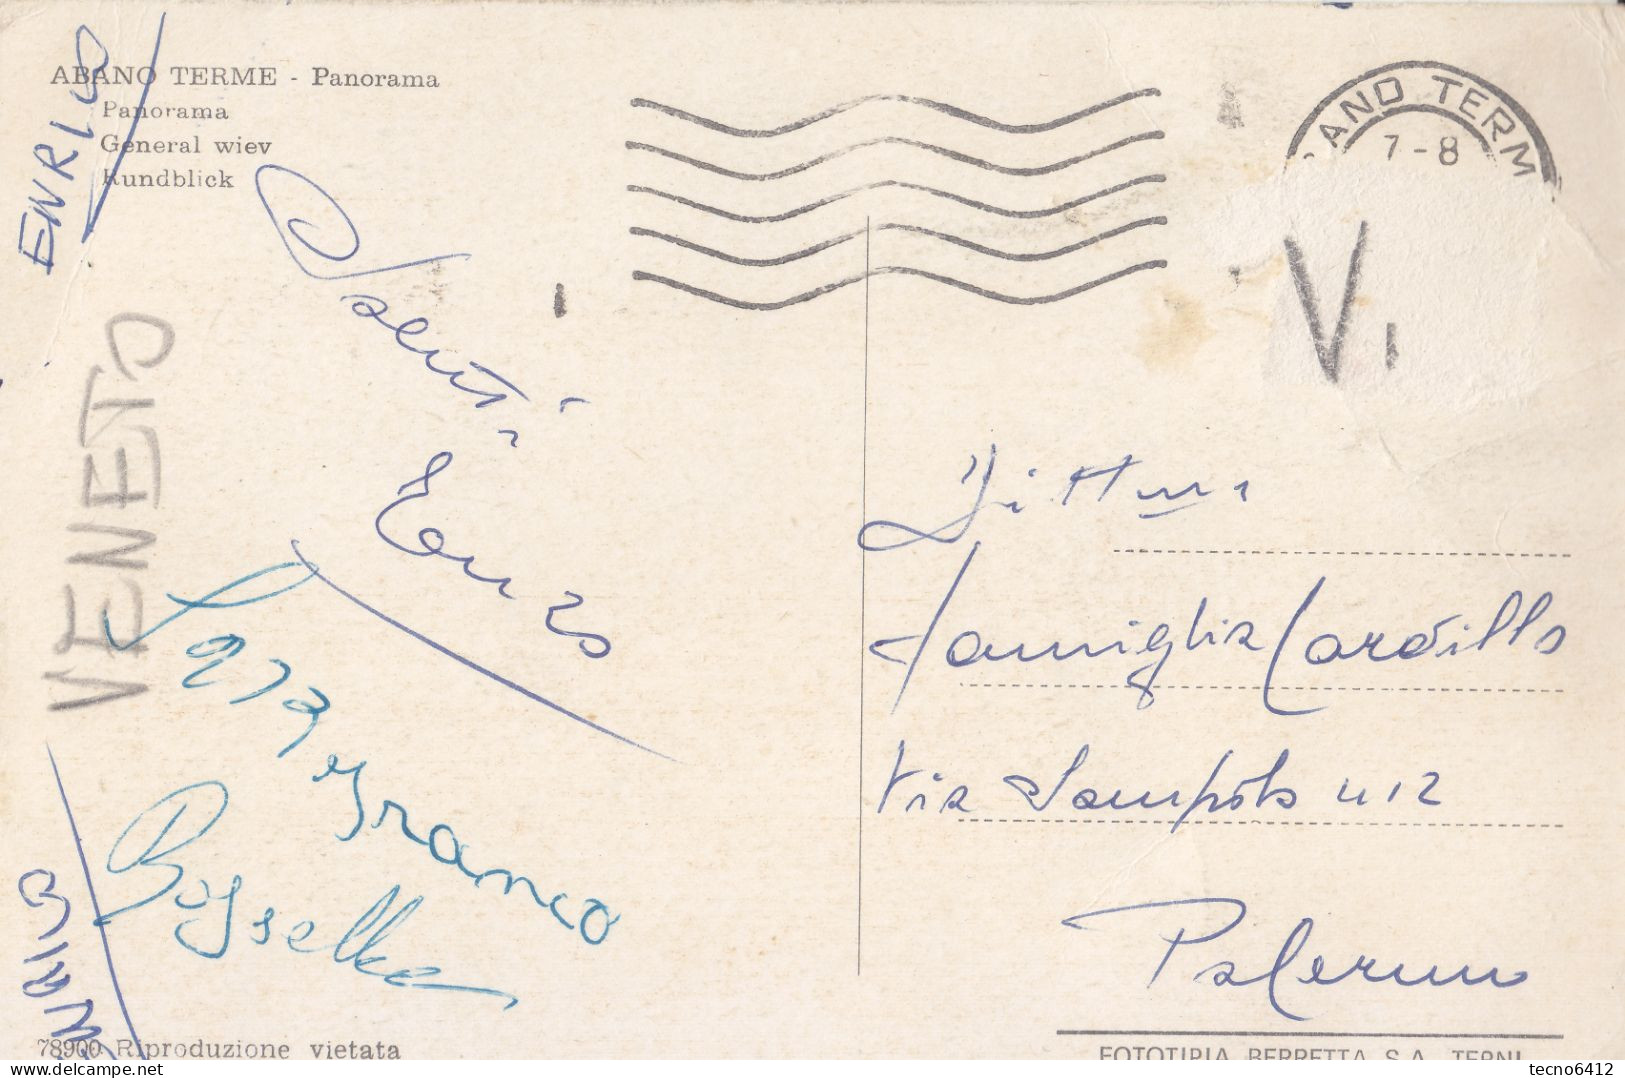 ABANO TERME - Panorama
Panorama
General wiev
Rundblick
ENRICO
VENETO
ANO TERM
7-8
V.
Saluti
Enzo
Franco
Famiglia Cardillo
Via Sampolo 412
Palermo
78900 Riproduzione vietata
FOTOTIPIA BERRETTA S.A. TERNI
tecno6412